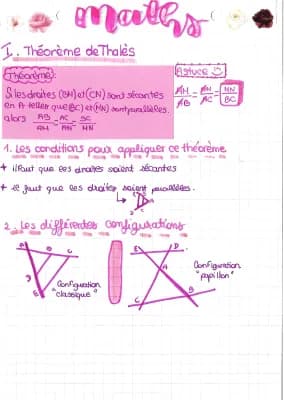 maths
I. Théorème de Thalès
Théorème:
Si les droites (BM) et (CN) sont sécantes
en A telles que (BC) et (MN) sont parallèles.
alors AB/AM = AC/AN = BC/MN
Astuce
AM/AB = AN/AC = MN/BC
1. Les conditions pour appliquer ce théorème
+ il faut que les droites soient sécantes
+ il faut que les droites soient parallèles.
2. Les différentes configurations
A B C
D
E
Configuration
"classique"
E D
A
B
C
Configuration
"papillon"